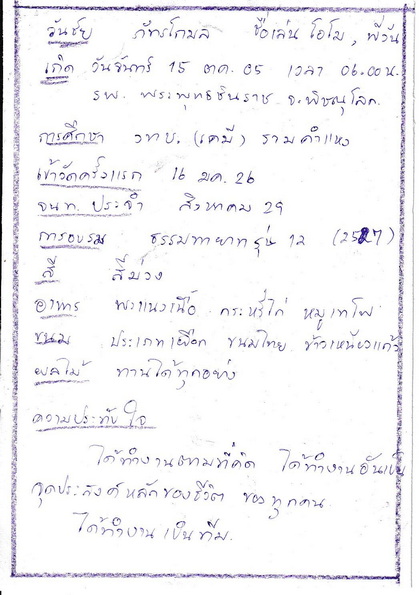 วันชัย ภัทรโกมล ชื่อเล่น โอโม, พี่วัน
เกิด วันจันทร์ 15 ตค. 05 เวลา 06.00 น.
รพ. พระพุทธชินราช จ.พิษณุโลก
การศึกษา วทบ. (เคมี) รามคำแหง
เข้าวัดครั้งแรก 16 มค. 26
จนท. ประจำ สิงหาคม 29
การอบรม ธรรมทายาทรุ่น 12 (2527)
สี สีม่วง
อาหาร พะแนงเนื้อ กระหรี่ไก่ หมูเทโพ
ขนม ประเภทเผือก ขนมไทย ข้าวเหนียวแก้ว
ผลไม้ ทานได้ทุกอย่าง
ความประทับใจ
ได้ทำงานตามที่คิด ได้ทำงานอันเป็น
จุดประสงค์หลักของชีวิต ของทุกคน
ได้ทำงานเป็นทีม.